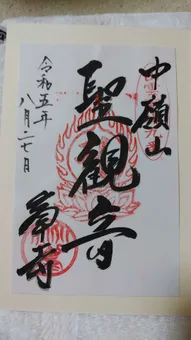 中嶺山
聖観音
令和五年
八月二七日
寺